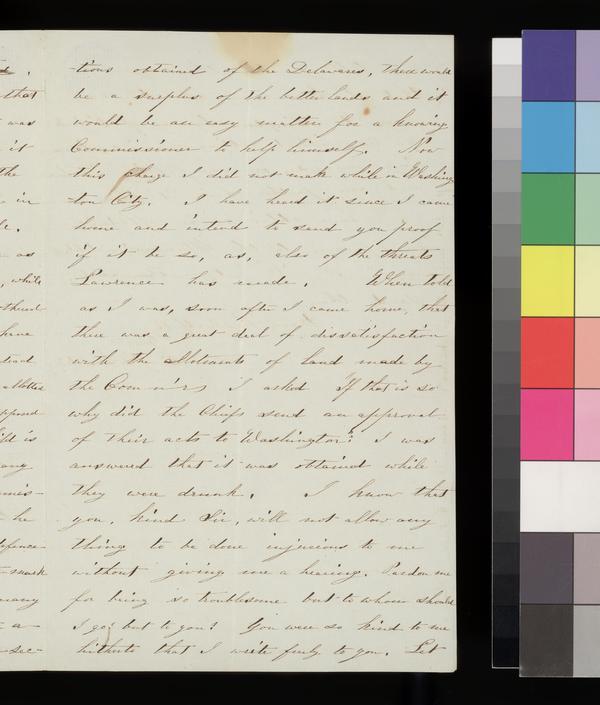 -tions obtained of the Delawares, there would
be a surplus of the better lands and it
would be an easy matter for a knowing
Commissioner to help himself. Now
this charge I did not make while in Washing
ton City. I have heard it since I came
home and intend to send you proof
if it be so, as, also of the threats
Lawrence has made. When told
as I was, soon after I came home, that
there was a great deal of dissatisfaction
with the Allotments of land made by
the Com'n'rs I asked "If that is so
why did the Chiefs send an approval
of their acts to Washington?" I was
answered that it was obtained while
they were drunk. I know that
you, kind Sir, will not allow any
thing to be done injurious to me
without giving me a hearing. Pardon me
for being so troublesome but to whom should
I go? but to you? You were so kind to me
hitherto that I write freely to you. Let
that
was
it
the
in
as
while
have
is
any
he
many
a